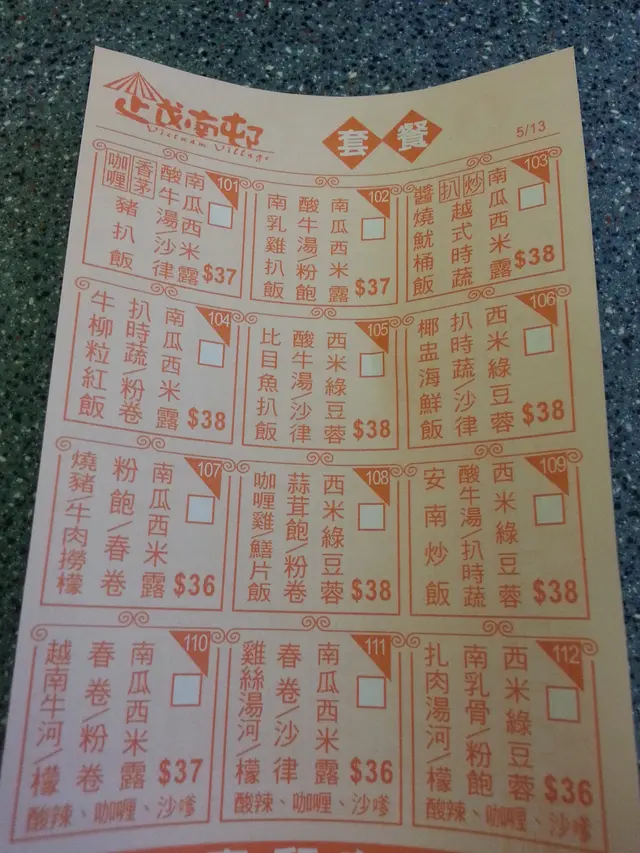 越南邨
Vietnam Village
套餐
5/13
101
咖喱
香茅
豬扒飯
酸牛湯/沙律
南瓜西米露
$37
102
南乳雞扒飯
酸牛湯/粉飽
南瓜西米露
$37
103
醬燒魷桶飯
扒 炒
越式時蔬
南瓜西米露
$38
104
牛柳粒紅飯
扒時蔬/粉卷
南瓜西米露
$38
105
比目魚扒飯
酸牛湯/沙律
西米綠豆蓉
$38
106
椰盅海鮮飯
扒時蔬/沙律
西米綠豆蓉
$38
107
燒豬/牛肉撈檬
粉飽/春卷
南瓜西米露
$36
108
咖喱雞/鱔片飯
蒜茸飽/粉卷
西米綠豆蓉
$38
109
安南炒飯
酸牛湯/扒時蔬
西米綠豆蓉
$38
110
越南牛河/檬
春卷/粉卷
南瓜西米露
$37
酸辣、咖喱、沙嗲
111
雞絲湯河/檬
春卷/沙律
南瓜西米露
$36
酸辣、咖喱、沙嗲
112
扎肉湯河/檬
南乳骨/粉飽
西米綠豆蓉
$36
酸辣、咖喱、沙嗲